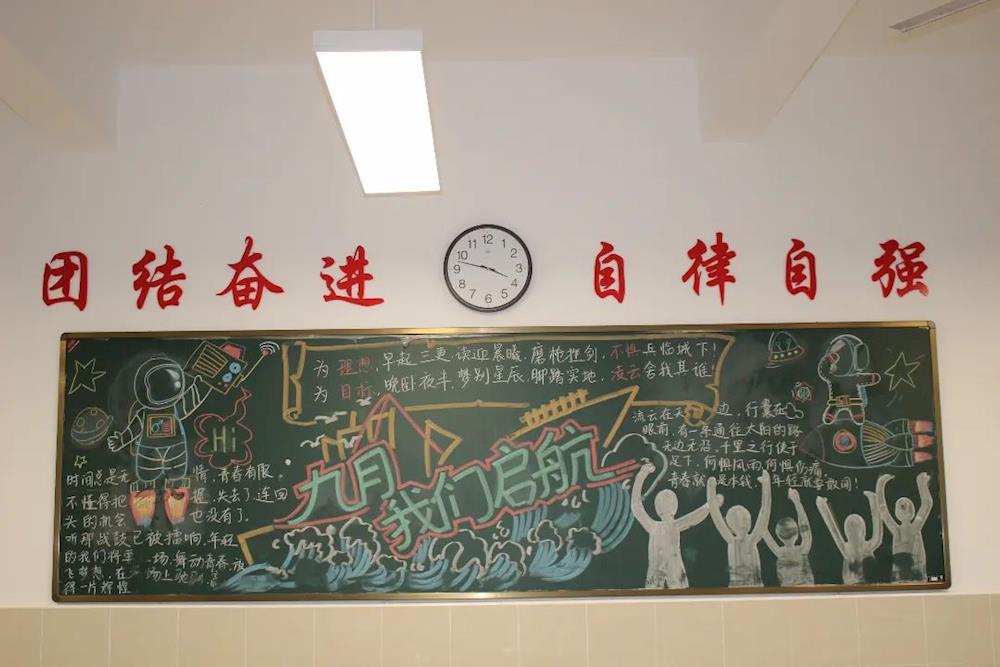 团结奋进
自律自强
12
1
2
3
4
5
6
7
8
9
10
11
为理想,早起三更,读迎晨曦,磨枪挫剑,不惧兵临城下!
为目标,晚卧夜半,梦别星辰,脚踏实地,凌云舍我其谁!
Hi
九月
我们启航
时间总是无情,青春有限,
不懂得把握,失去了,连回
头的机会也没有了。
听那战鼓已被擂响,年轻
的我们将军 场,舞动青春,放
飞梦想,在 场上驰
得一片辉煌
流云在天边,行囊在
眼前,有一条通往太阳的路
无边无沿,千里之行便于
足下,何惧风雨,何惧伤痛,
青春就是本钱,年轻就要敢闯!